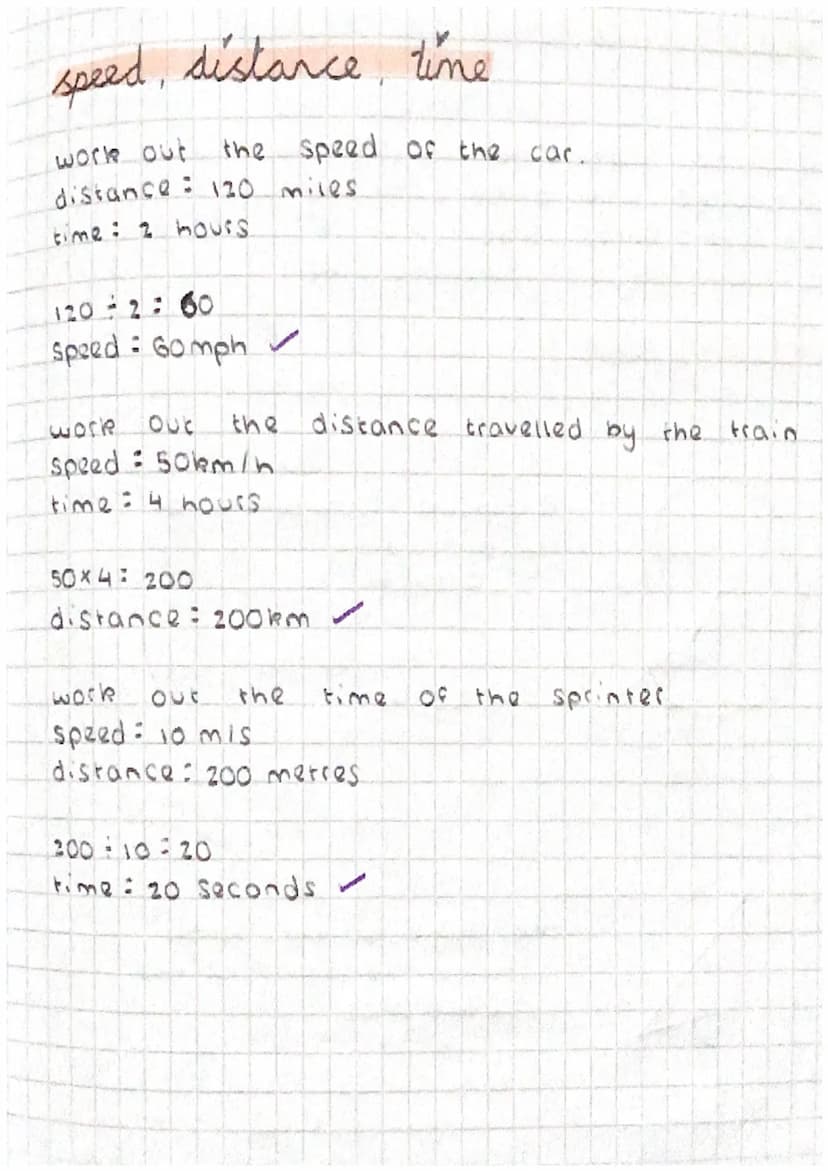 speed, distance, time
work out the speed of the car.
distance = 120 miles
time = 2 hours
120 ÷ 2 = 60
speed = 60mph ✓
work out the distance travelled by the train
speed = 50km/h
time = 4 hours
50 × 4 = 200
distance = 200km ✓
work out the time of the sprinter
speed = 10 m/s
distance = 200 metres
200 ÷ 10 = 20
time = 20 seconds ✓